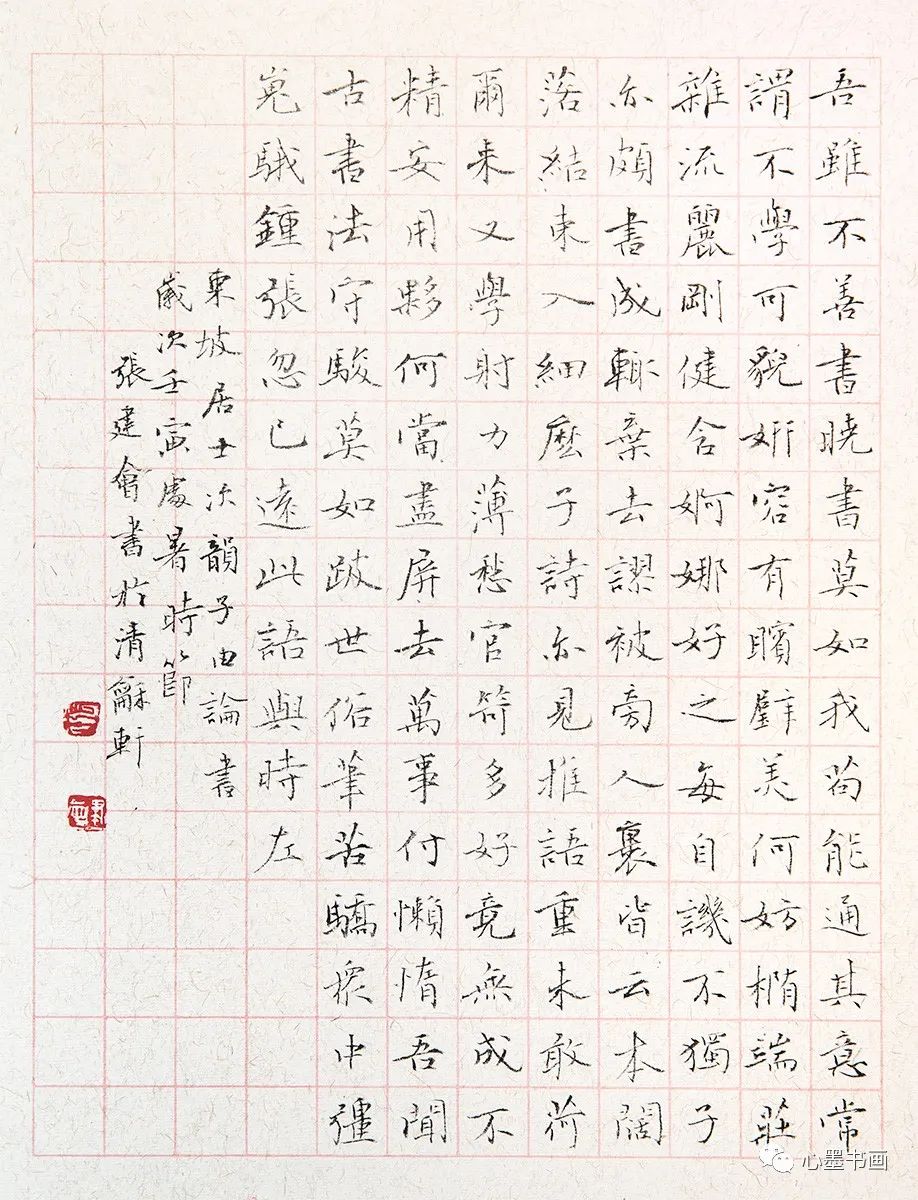 吾雖不善書曉書莫如我苟能通其意常
謂不學可貌妍容有矉璧美何妨橢端莊
雜流麗剛健含婀娜好之每自譏不獨子
亦頗書成輒棄去謬被旁人裹皆云本闊
落結束入細麽子詩亦見推語重未敢荷
爾來又學射力薄愁官笴多好竟無成不
精安用夥何當盡屏去萬事付懶惰吾聞
古書法守駿莫如跛世俗筆苦驕衆中彊
嵬騀鍾張忽已遠此語與時左
東坡居士次韻子由論書
歲次壬寅處暑時節
張建會書於清龢軒
心墨书画